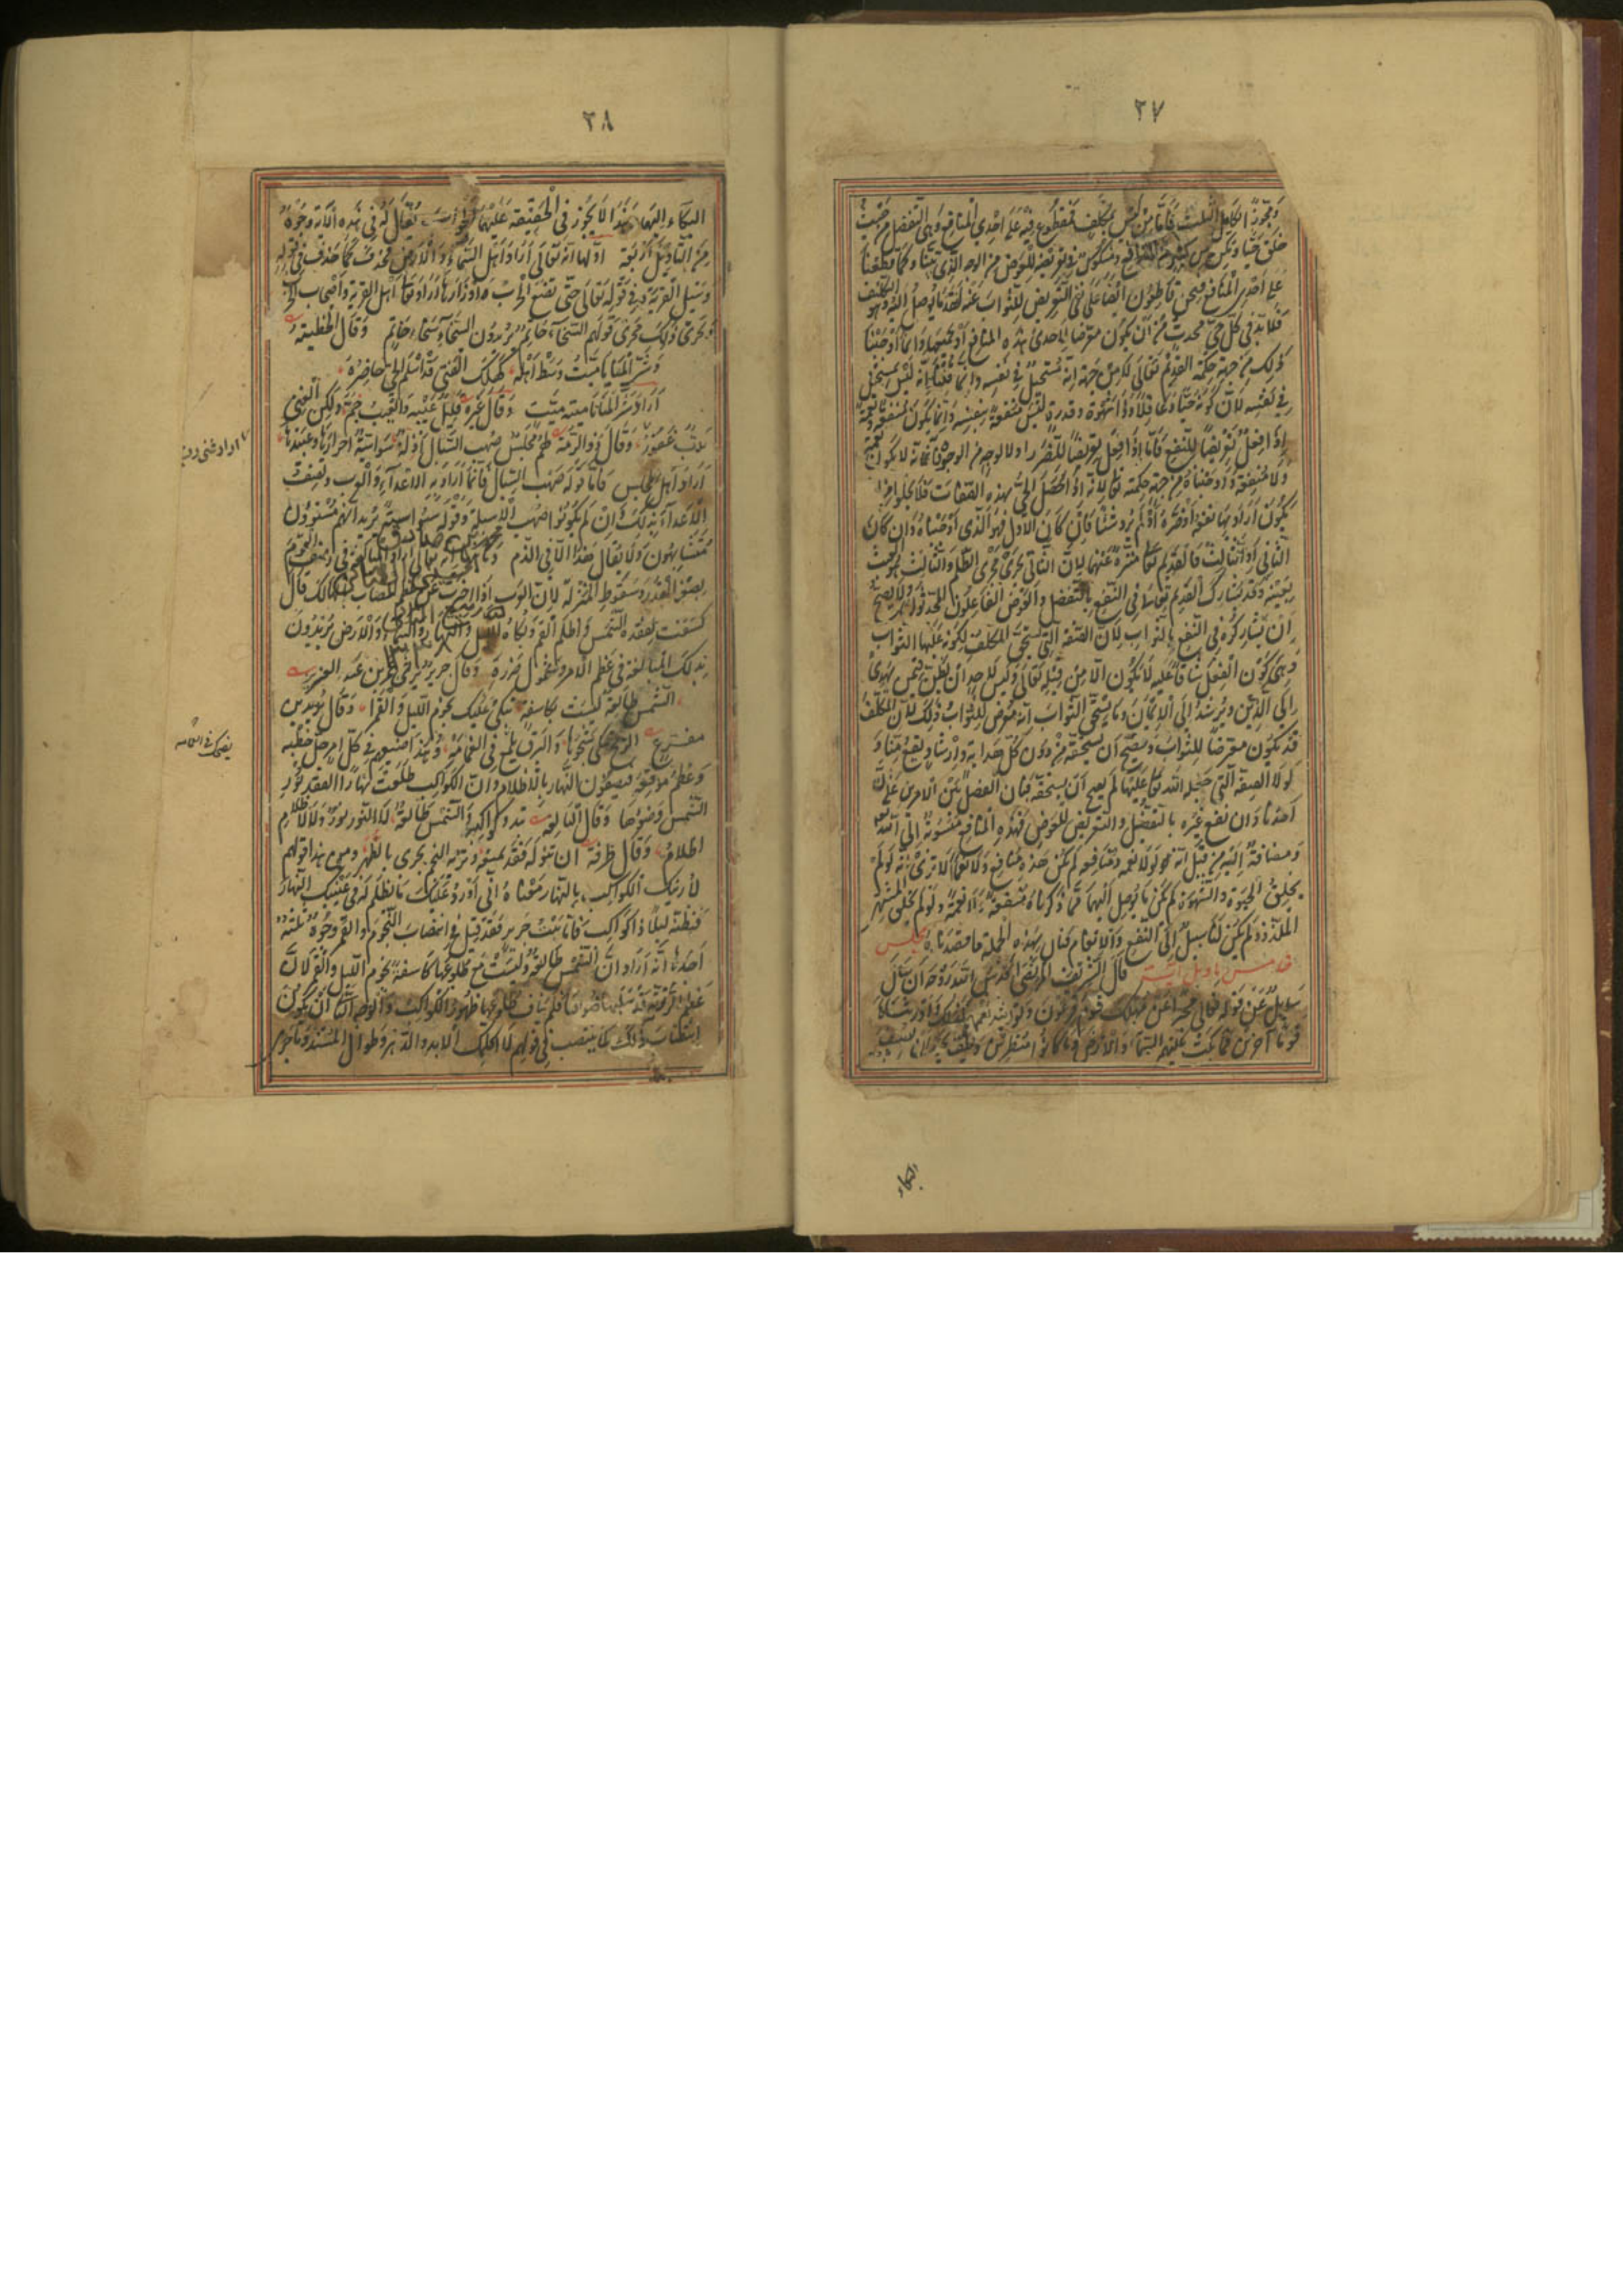 ٢٧
وتجوز التكامل الثلث فأما من ليس بمكلف فمقطوع فيه على احدى المنافع وهي التفضل من حيث
خلق حيا ومشكوك في تعريضه للعوض من الوجه الذي بينا وكما قطعنا
على احدى المنافع فنحن قاطعون ايضا على نفي التعريض للثواب عنه لفقد ما يوصل اليه وهو التكليف
فلا بد في كل حي محدث من ان يكون معرضا لاحدى هذه المنافع او لجميعها وانما اوجبنا
ذلك من جهة حكمة القديم تعالى لا من جهة انه يستحيل في نفسه وانما قلنا انه ليس بمستحيل
في نفسه لان كونه حيا وعاقلا وذا شهوة وقدرة ليس منفعة بنفسه وانما يكون منفعة ونعمة
اذا فعل تعريضا للنفع فأما اذا فعل تعريضا للضرر او لا لوجه من الوجوه فانه لا يكون نعمة
ولا منفعة واوجبناه من جهة حكمته تعالى لانه اذا جعل الحي بهذه الصفات فلا يخلو من ان
يكون اراد بها نفعه او ضره او لم يرد شيئا فان كان الاول فهو الذي اوجبناه وان كان
الثاني او الثالث فالقديم تعالى منزه عنهما لان الثاني يجري مجرى الظلم والثالث العبث
بعينه وقد يشارك القديم تعالى في النفع بالتفضل والعوض الفاعلون المحدثون ولا يصح
ان يشاركوه في النفع بالثواب لان الصفة التي يستحق المكلف لكونه عليها الثواب
وهي كون الفعل شاقا عليه لا تكون الا من قبله تعالى وليس لاحد ان يظن فيمن يهدي
الى الدين ويرشد الى الايمان وما يستحق الثواب انه معرض للثواب وذلك لان المكلف
قد يكون معرضا للثواب ويصح ان يستحقه من دون كل هداية وارشاد يقع منا و
لولا الصفة التي جعله الله تعالى عليها لم يصح ان يستحقه فبان الفصل بين الامرين على ان
احدنا وان نفع غيره بالتفضل والتعريض للعوض فهذه المنافع منسوبة الى الله تعالى
ومضافة اليه من قبل انه لولا نعمه ومنافعه لم تكن هذه منافع ولا نعما الا ترى انه لو لم
يخلق الحيوة والشهوة لم يكن ما يوصل اليهما مما ذكرناه منفعة ولا نعمة ولو لم يخلق المشتهى
الملذوذ لم يكن لنا سبيل الى النفع والانعام فبان بهذه الجملة ما قصدناه مجلس
خامس تاويل آية قال الشريف المرتضى قدس الله روحه ان سأل
سائل عن قوله تعالى مخبرا عن مهلك قوم فرعون وتوريثه نعمهم كذلك واورثناها
قوما آخرين فما بكت عليهم السماء والارض وما كانوا منظرين وكيف يجوز ان يضيف
البكاء
٢٨
البكاء اليهما وهذا لا يجوز في الحقيقة عليهما الجواب يقال له في هذه الآية وجوه
من التأويل اربعة اولها انه تعالى اراد اهل السماء والارض فحذف كما حذف في قوله
وسئل القرية وفي قوله تعالى حتى تضع الحرب اوزارها واراد تعالى اهل القرية واصحاب الحرب
ويجري ذلك مجرى قولهم السخاء حاتم يريدون السخاء سخاء حاتم وقال الحطيئة
وشر المنايا ميت وسط اهله كهلك الفتى قد اسلم الحي حاضره
اراد وشر المنايا ميتة ميت وقال غيره قليل عيبه والعيب جم ولكن الغنى
رب غفور وقال ذو الرمة لهم مجلس صهب السبال اذلة سواسية احرارها وعبيدها
اراد اهل مجلس فأما قوله صهب السبال فانما اراد به الاعداء والعرب تصف
الاعداء بذلك وان لم يكونوا صهب الاسبلة وقوله سواسية يريد انهم مستوون
متشابهون ولا يقال هذا الا في الذم
بصغر القدر وسقوط المنزلة لان العرب اذا اخبرت عن عظم المصاب بالهالك قال
كسفت لفقده الشمس واظلم القمر وبكاه الليل والنهار والسماء والارض يريدون
بذلك المبالغة في عظم الامر وشمول ضرره وقال جرير يرثي عمر بن عبد العزيز
الشمس طالعة ليست بكاسفة تبكي عليك نجوم الليل والقمرا وقال يزيد بن
مفرغ الريح تبكي شجوها والبرق يلمع في الغمامة وهذا صنيعهم في كل امر جل خطبه
وعظم موقعه فيصفون النهار بالاظلام وان الكواكب طلعت نهارا لفقد نور
الشمس وضوئها وقال النابغة تبدو كواكبه والشمس طالعة لا النور نور ولا الاظلام
اظلام وقال طرفة ان تنوله فقد تمنعه وتريه النجم يجري بالظهر ومن هذا قولهم
لأرينك الكواكب بالنهار معناه اني اورد عليك ما يظلم له في عينيك النهار
فتظنه ليلا ذا كواكب فأما بيت جرير فقد قيل في انتصاب النجوم والقمر وجوه ثلثة
احدها انه اراد ان الشمس طالعة وليست مع طلوعها كاسفة نجوم الليل والقمر لان
عظم الرزية قد سلبها ضوءها فلم يناف طلوعها ظهور الكواكب والوجه الثاني ان يكون
انتصاب ذلك كما ينتصب في قولهم لا اكلمك الابد والدهر وطوال المسند وما جرى